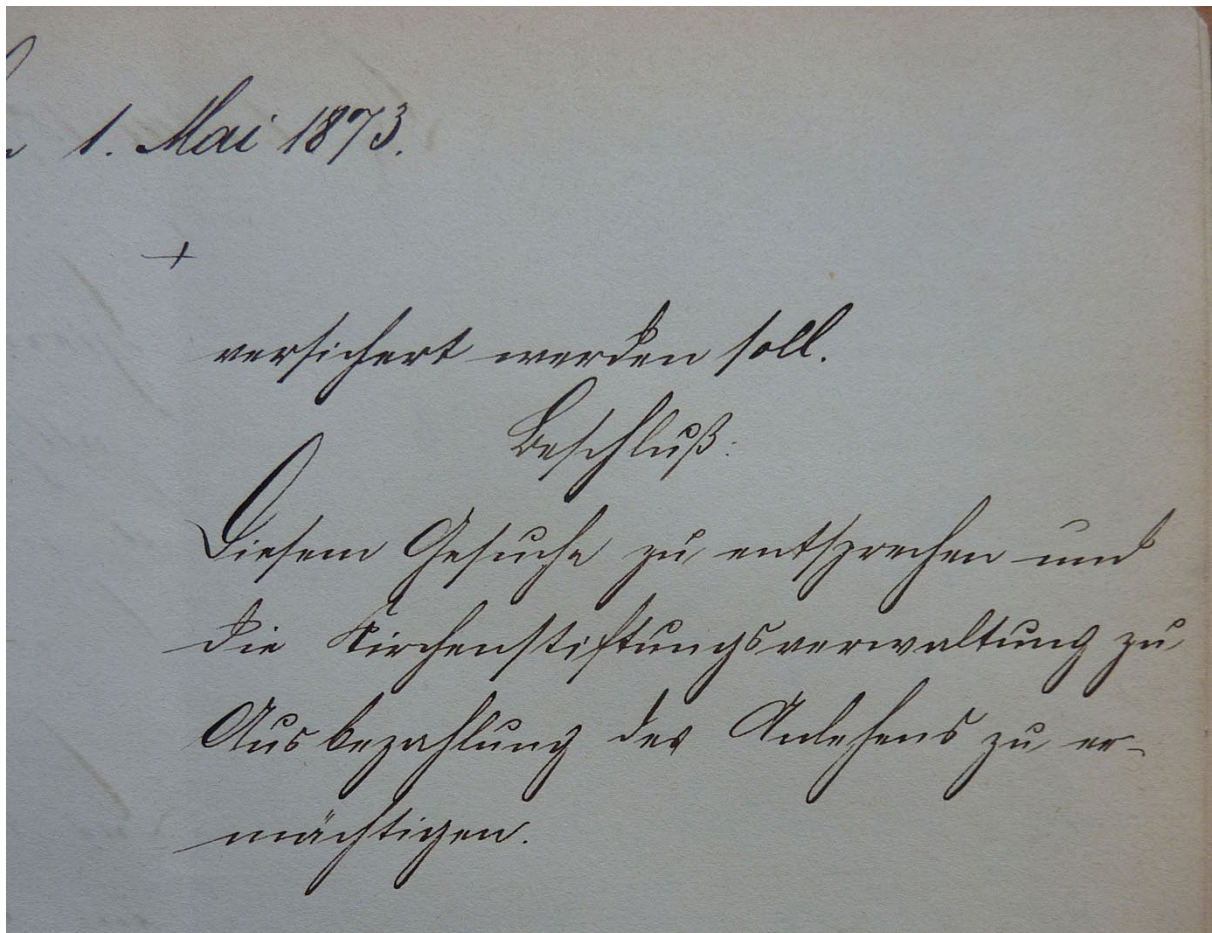 1. Mai 1873.
+
versichert werden soll.
Beschluß:
Diesem Gesuche zu entsprechen und
die Kirchenstiftungsverwaltung zu
Ausbezahlung des Anlehens zu er-
mächtigen.